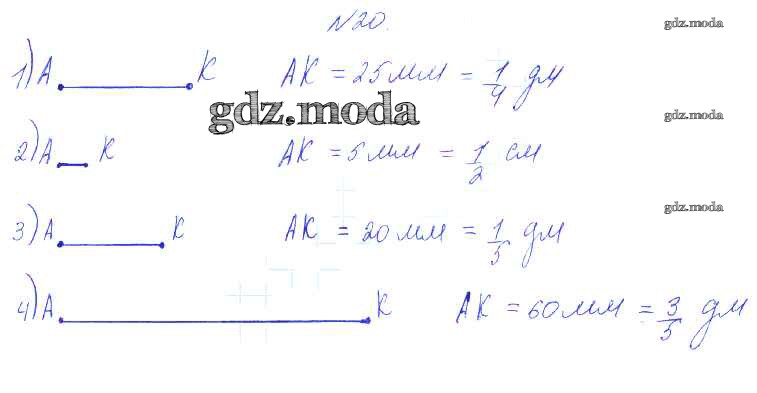 N20.
gdz.moda
1) A K AK = 25 мм = 1/4 дм
gdz.moda
gdz.moda
2) A K AK = 5 мм = 1/2 см
gdz.moda
3) A K AK = 20 мм = 1/5 дм
4) A K AK = 60 мм = 3/5 дм